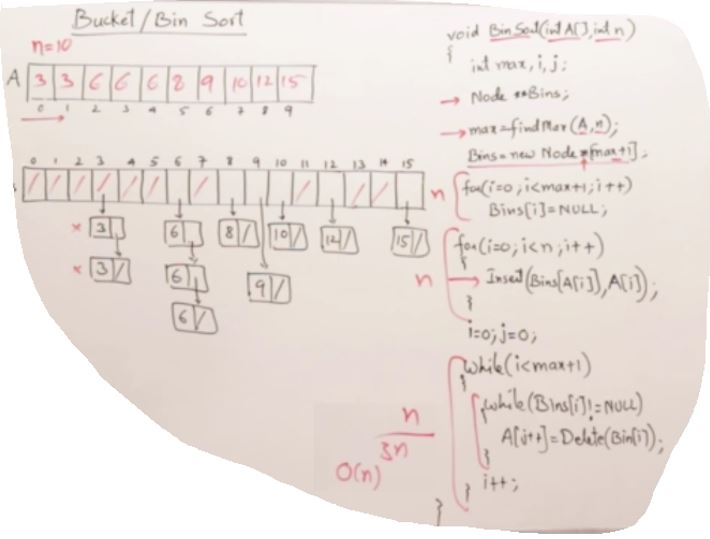 Bucket/Bin Sort
n=10
A 3 3 6 6 6 8 9 10 12 15
0 1 2 3 4 5 6 7 8 9
0 1 2 3 4 5 6 7 8 9 10 11 12 13 14 15
3 6 8 10 12 15
3 6 9
6
void BinSort(int A[], int n)
{
int max, i, j;
Node **Bins;
max=findMax(A,n);
Bins=new Node *[max+1];
n for(i=0; i<max+1; i++)
Bins[i]=NULL;
for(i=0; i<n; i++)
{
n Insert(Bins[A[i]], A[i]);
}
i=0; j=0;
while(i<max+1)
{
while(Bins[i]!=NULL)
{
A[j++]=Delete(Bin[i]);
}
i++;
}
}
n
3n
O(n)